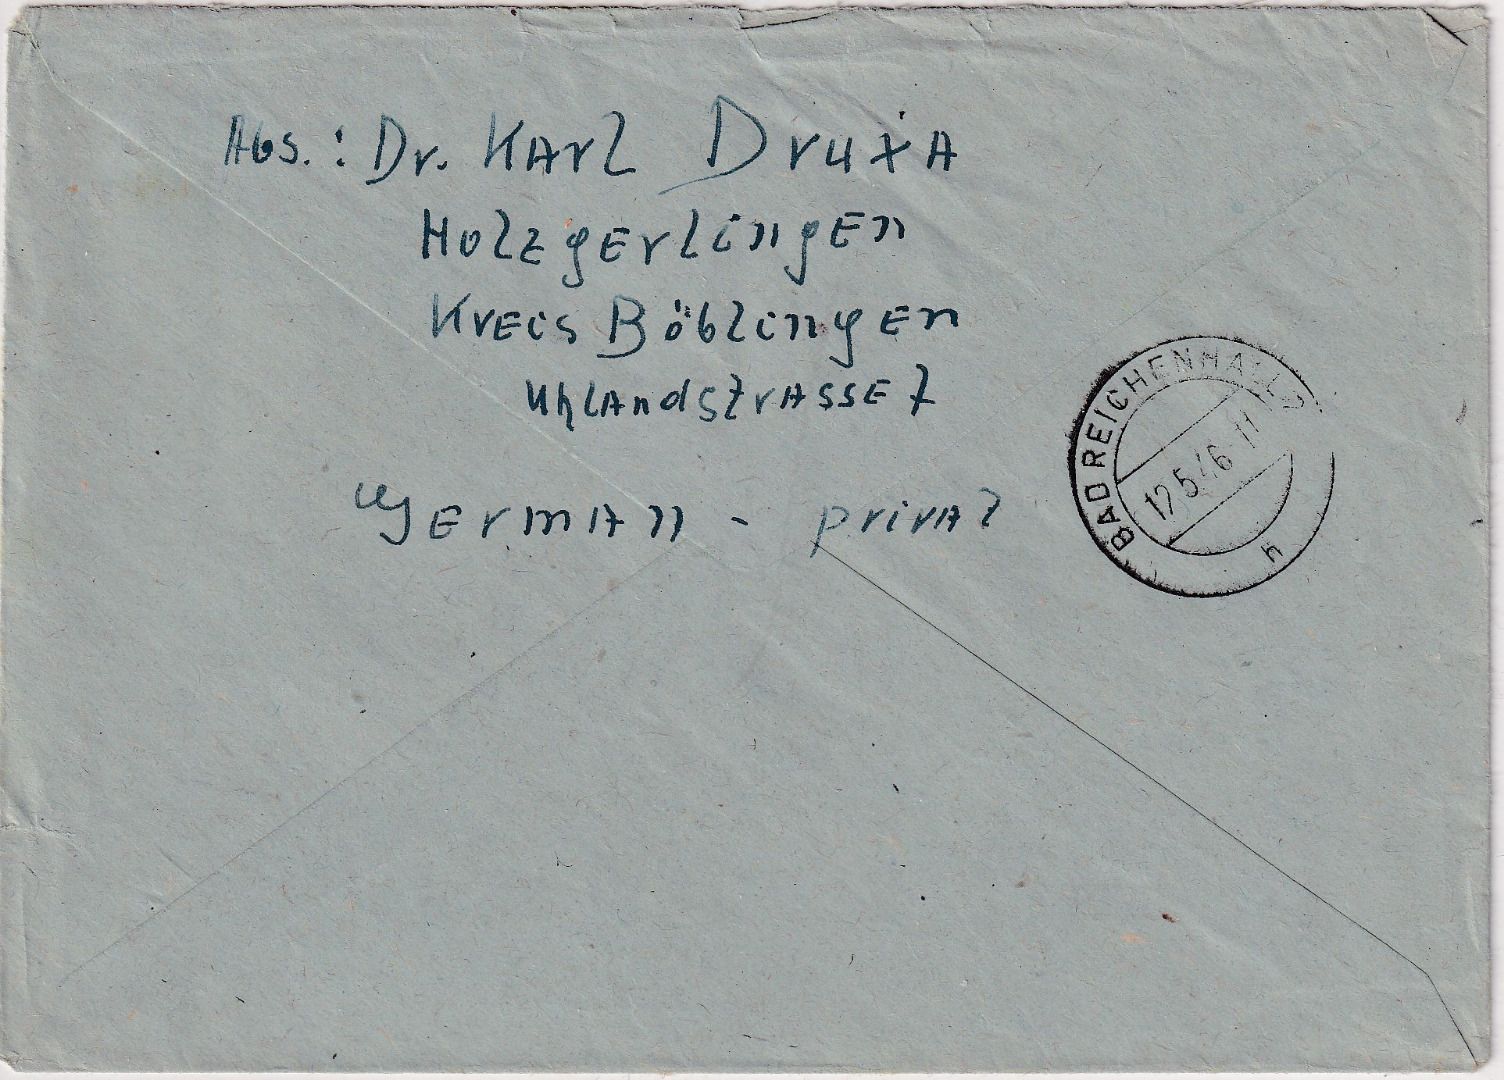 Abs.: Dr. Karl Druxa
Holzgerlingen
Kreis Böblingen
Uhlandstrasse 7
German - privat
BAD REICHENHALL 2
12.5.46-11
h